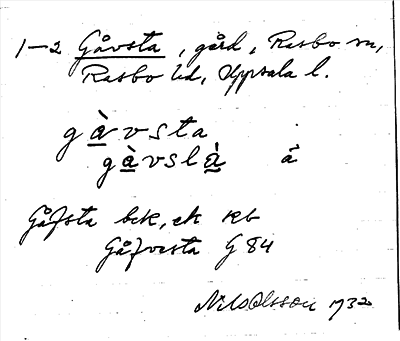 1-2 Gåvsta, gård, Rasbo sn,
Rasbo hd, Uppsala l.
gàvsta
gàvslà å
Gåfsta bek, ek kb
Gåfvesta G 84
Nils Olsson 1932